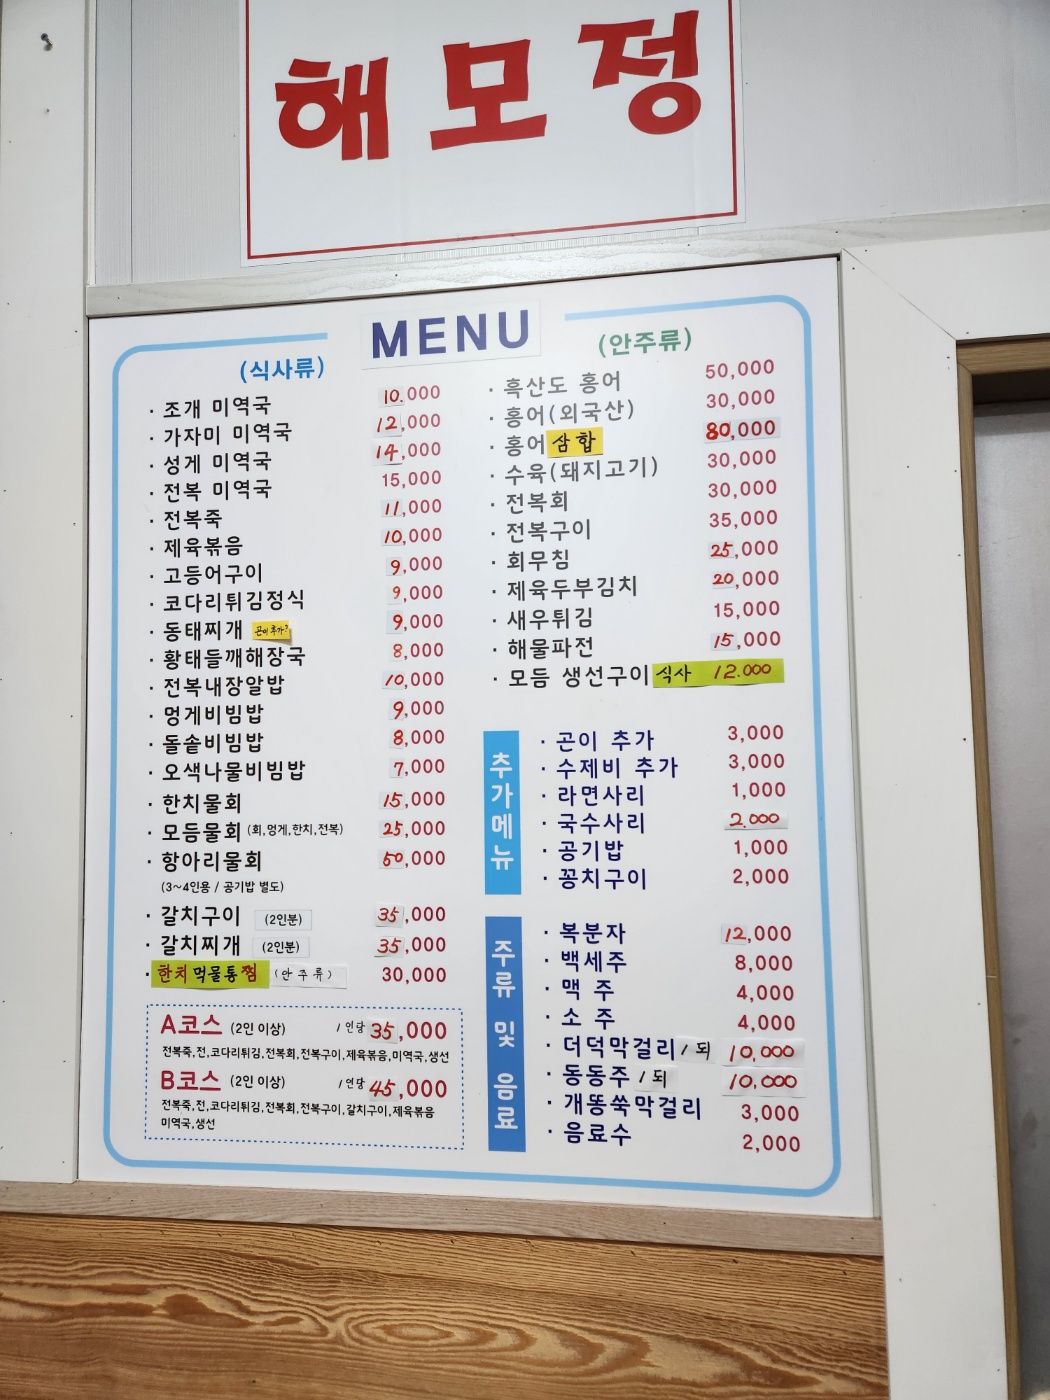 해모정
MENU
(식사류)
· 조개 미역국 10,000
· 가자미 미역국 12,000
· 성게 미역국 14,000
· 전복 미역국 15,000
· 전복죽 11,000
· 제육볶음 10,000
· 고등어구이 9,000
· 코다리튀김정식 9,000
· 동태찌개 곤이추가? 9,000
· 황태들깨해장국 8,000
· 전복내장알밥 10,000
· 멍게비빔밥 9,000
· 돌솥비빔밥 8,000
· 오색나물비빔밥 7,000
· 한치물회 15,000
· 모듬물회 (회,멍게,한치,전복) 25,000
· 항아리물회 50,000
(3~4인용 / 공기밥 별도)
· 갈치구이 (2인분) 35,000
· 갈치찌개 (2인분) 35,000
· 한치먹물통찜 (안주류) 30,000
A코스 (2인 이상) 1인당 35,000
전복죽,전,코다리튀김,전복회,전복구이,제육볶음,미역국,생선
B코스 (2인 이상) 1인당 45,000
전복죽,전,코다리튀김,전복회,전복구이,갈치구이,제육볶음
미역국,생선
(안주류)
· 흑산도 홍어 50,000
· 홍어(외국산) 30,000
· 홍어삼합 80,000
· 수육(돼지고기) 30,000
· 전복회 30,000
· 전복구이 35,000
· 회무침 25,000
· 제육두부김치 20,000
· 새우튀김 15,000
· 해물파전 15,000
· 모듬 생선구이 식사 12.000
추가메뉴
· 곤이 추가 3,000
· 수제비 추가 3,000
· 라면사리 1,000
· 국수사리 2.000
· 공기밥 1,000
· 꽁치구이 2,000
주류 및 음료
· 복분자 12,000
· 백세주 8,000
· 맥 주 4,000
· 소 주 4,000
· 더덕막걸리 1되 10,000
· 동동주 1되 10,000
· 개똥쑥막걸리 3,000
· 음료수 2,000